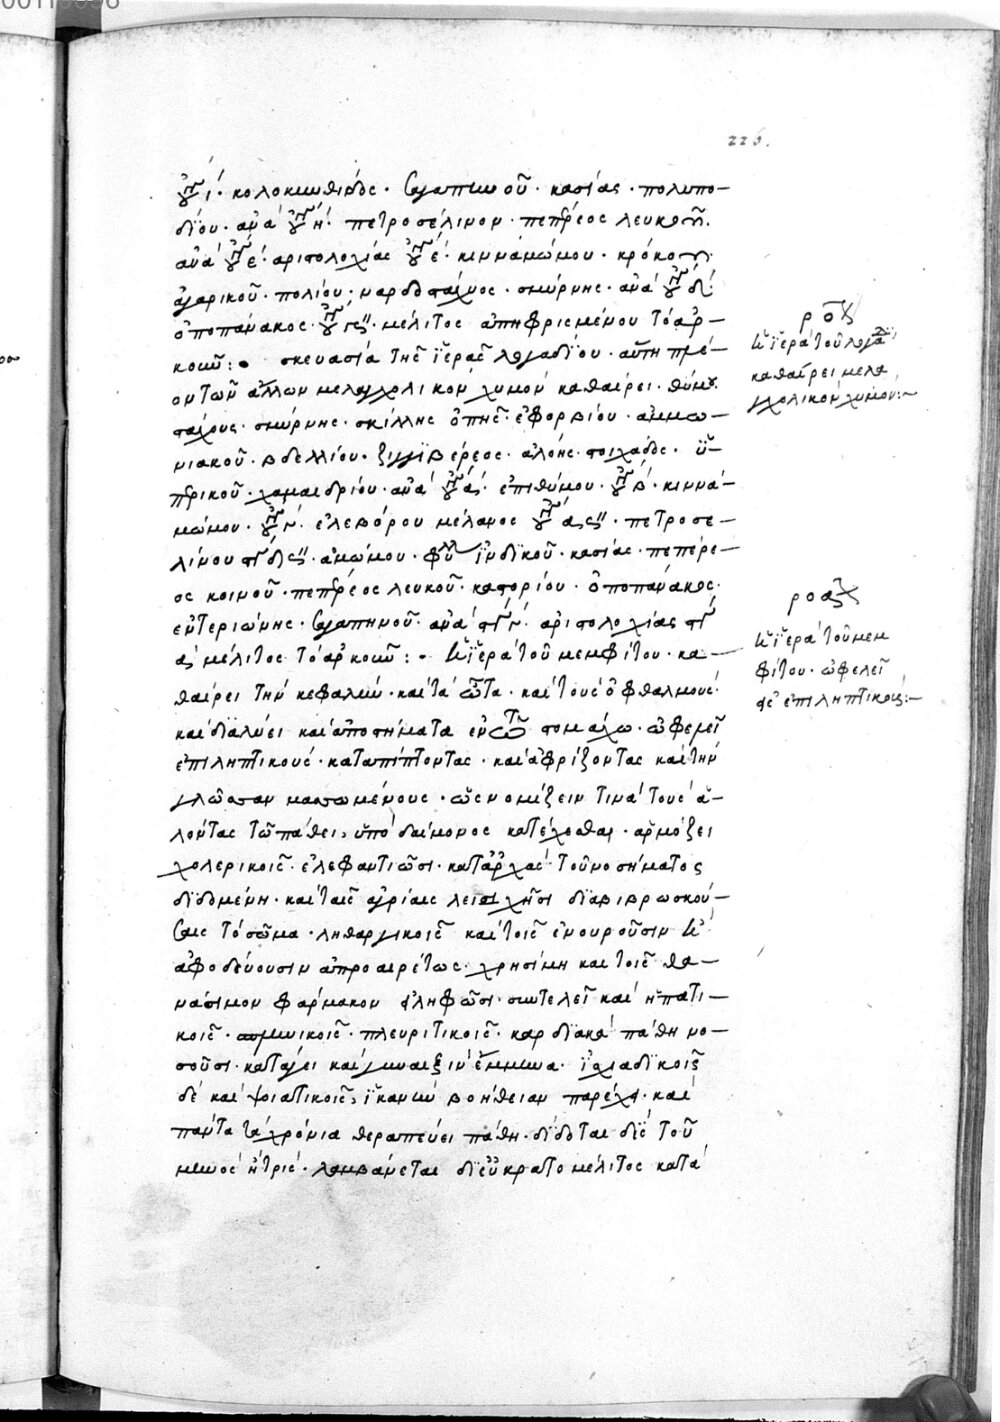 226.
κολοκυνθίδος · σαγαπηνοῦ · κασίας · πολυπο-
δίου · ἀνὰ · πετροσέλινον · πεπέρεος λευκοῦ
ἀνὰ · ἀριστολοχίας · κινναμώμου · κρόκου
ἀγαρικοῦ · πολίου · ναρδοστάχυος · σμύρνης · ἀνὰ
ὀποπάνακος · μέλιτος ἀπηφρισμένου τὸ ἀρ-
κοῦν : σκευασία τῆς ἱερᾶς λογαδίου · αὕτη
τῶν ἄλλων μελαγχολικὸν χυμὸν καθαίρει · θύμου
στάχυος · σμύρνης · σκίλλης ὀπῆς · εὐφορβίου · ἀμμω-
νιακοῦ · βδελλίου · ζιγγιβέρεος · ἀλόης · στοιχάδος · ἰ-
λιρικοῦ · χαμαεδρίου · ἀνὰ · ἐπιθύμου · κιννα-
μώμου · ἐλεβόρου μέλανος · πετροσε-
λίνου · ἀμώμου · φύλλου ἰνδικοῦ · κασίας · πεπέρε-
ος κοινοῦ · πεπέρεος λευκοῦ · καστορίου · ὀποπάνακος
ἐντεριώνης · σαγαπηνοῦ · ἀνὰ · ἀριστολοχίας
μέλιτος τὸ ἀρκοῦν : ἡ ἱερὰ τοῦ μεμφίτου · κα-
θαίρει τὴν κεφαλὴν · καὶ τὰ ὦτα · καὶ τοὺς ὀφθαλμούς
καὶ διαλύει καὶ ἀποστήματα ἐν τῷ στομάχω · ὠφελεῖ
ἐπιληπτικοὺς · καταπίπτοντας · καὶ ἀφρίζοντας καὶ τὴν
γλῶσσαν μασσωμένους · ὡς νομίζειν τινὰ τοὺς ἁ-
λόντας τῶ πάθει, ὑπὸ δαίμονος κατέχεσθαι · ἁρμόζει
χολερικοῖς · ἐλεφαντιῶσι · κατ' ἀρχὰς τοῦ νοσήματος
διδομένη · καὶ ταῖς ἀγρίαις λειχῆσι διαβιβρωσκού-
σαις τὸ σῶμα · ληθαργικοῖς καὶ τοῖς ἐνουροῦσιν
ἀφοδεύουσιν ἀπροαιρέτως · χρησίμη καὶ τοῖς θα-
νάσιμον φάρμακον εἰληφῶσι · συντελεῖ καὶ ἡπατι-
κοῖς · πλευριτικοῖς · καρδιακὰ πάθη νο-
σοῦσι · κατάγει καὶ γυναιξὶν ἔμμηνα · ἰσχιαδικοῖς
δὲ καὶ ψοιατικοῖς, ἱκανὴν βοήθειαν παρέχει · καὶ
πάντα τὰ χρόνια θεραπεύει πάθη · δίδοται δὶς τοῦ
μηνὸς ἢ τρὶς · λαμβάνεται δι' εὐκράτο μέλιτος κατὰ
ροζ
ἡ ἱερὰ τοῦ λογα
καθαίρει μελα
γχολικὸν χυμόν :~
ἡ ἱερὰ τοῦ μεμ
φίτου · ὠφελεῖ
δὲ ἐπιληπτικοῖς :~